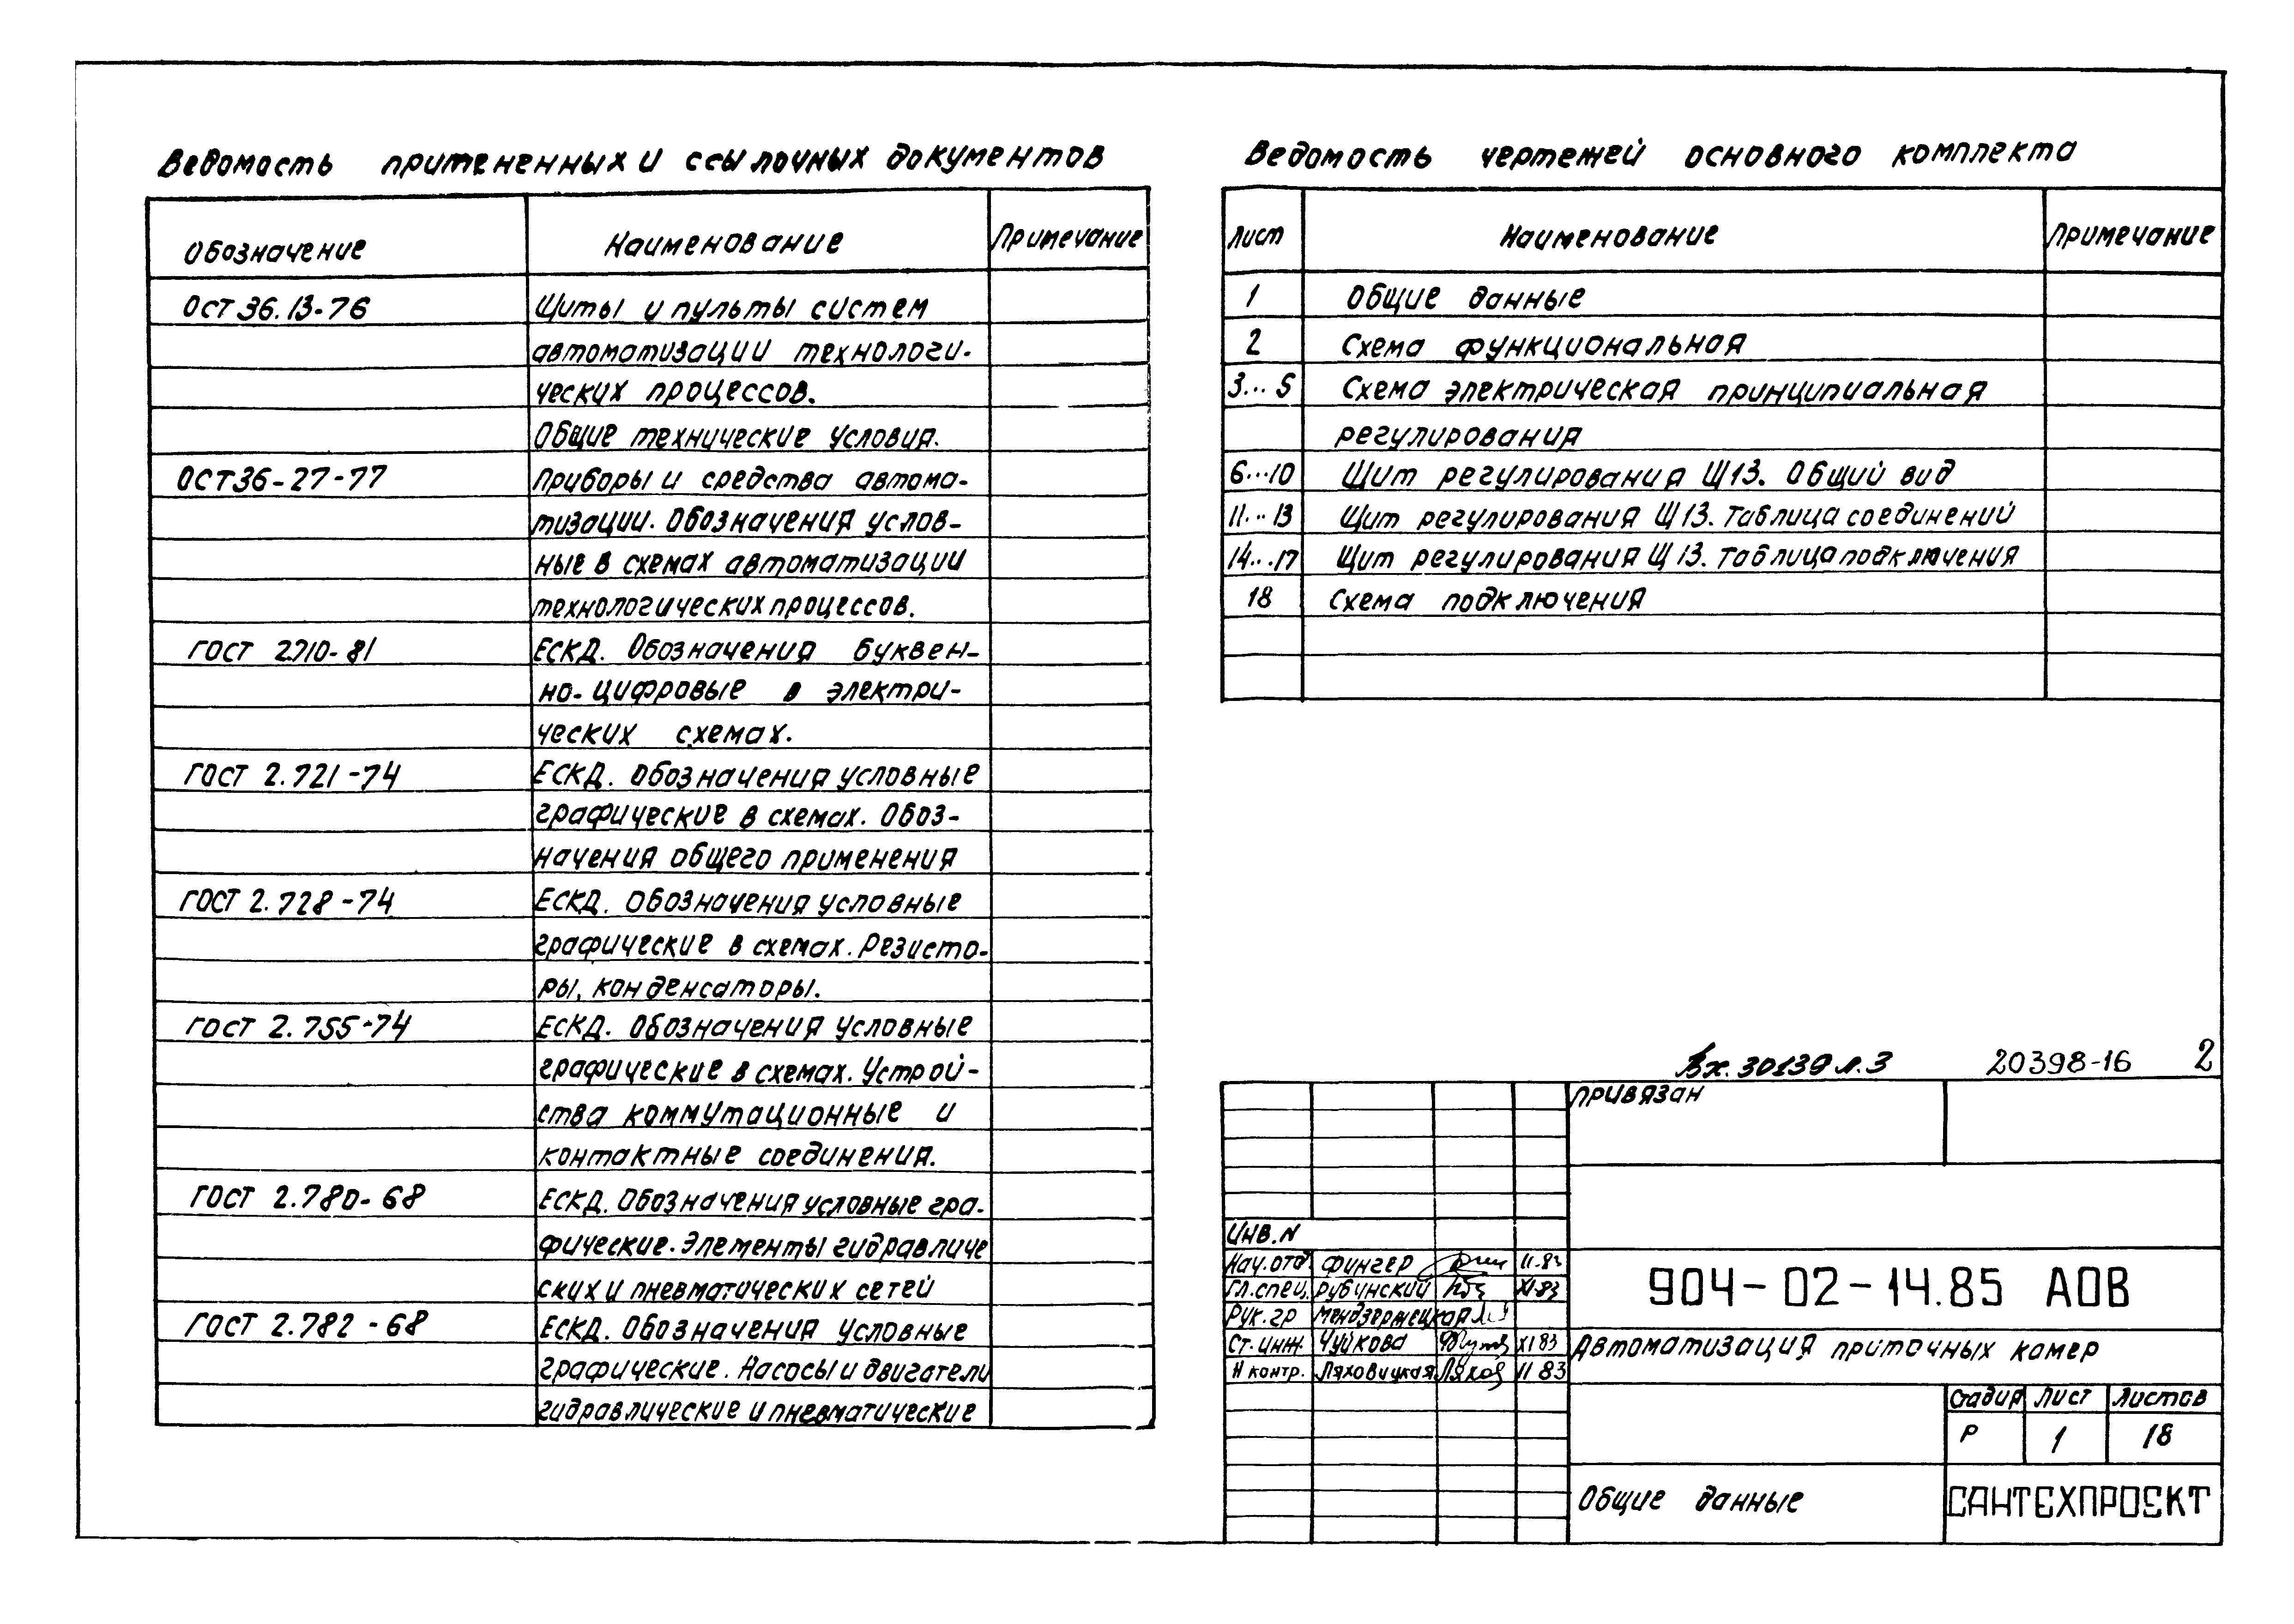 Ведомость примененных и ссылочных документов
Обозначение Наименование Примечание
ОСТ 36.13-76 Щиты и пульты систем
автоматизации технологи-
ческих процессов.
Общие технические условия.
ОСТ36-27-77 Приборы и средства автома-
тизации. Обозначения услов-
ные в схемах автоматизации
технологических процессов.
ГОСТ 2.710-81 ЕСКД. Обозначения буквен-
но-цифровые в электри-
ческих схемах.
ГОСТ 2.721-74 ЕСКД. Обозначения условные
графические в схемах. Обоз-
начения общего применения
ГОСТ 2.728-74 ЕСКД. Обозначения условные
графические в схемах. Резисто-
ры, конденсаторы.
ГОСТ 2.755-74 ЕСКД. Обозначения условные
графические в схемах. Устрой-
ства коммутационные и
контактные соединения.
ГОСТ 2.780-68 ЕСКД. Обозначения условные гра-
фические. Элементы гидравличе
ских и пневматических сетей
ГОСТ 2.782-68 ЕСКД. Обозначения условные
графические. Насосы и двигатели
гидравлические и пневматические
Ведомость чертежей основного комплекта
Лист Наименование Примечание
1 Общие данные
2 Схема функциональная
3...5 Схема электрическая принципиальная
регулирования
6...10 Щит регулирования Щ13. Общий вид
11...13 Щит регулирования Щ13. Таблица соединений
14...17 Щит регулирования Щ13. Таблица подключения
18 Схема подключения
Вх. 30139 л.3 20398-16 2
Привязан
Инв. N
Нач. отд Фингер 11.83
Гл. спец. Рубинский XI.83
Рук. гр Мендзержецкая
Ст. инж. Чуйкова XI 83
Н контр. Ляховицкая 11 83
904-02-14.85 АОВ
Автоматизация приточных камер
Стадия Лист Листов
Р 1 18
Общие данные
САНТЕХПРОЕКТ